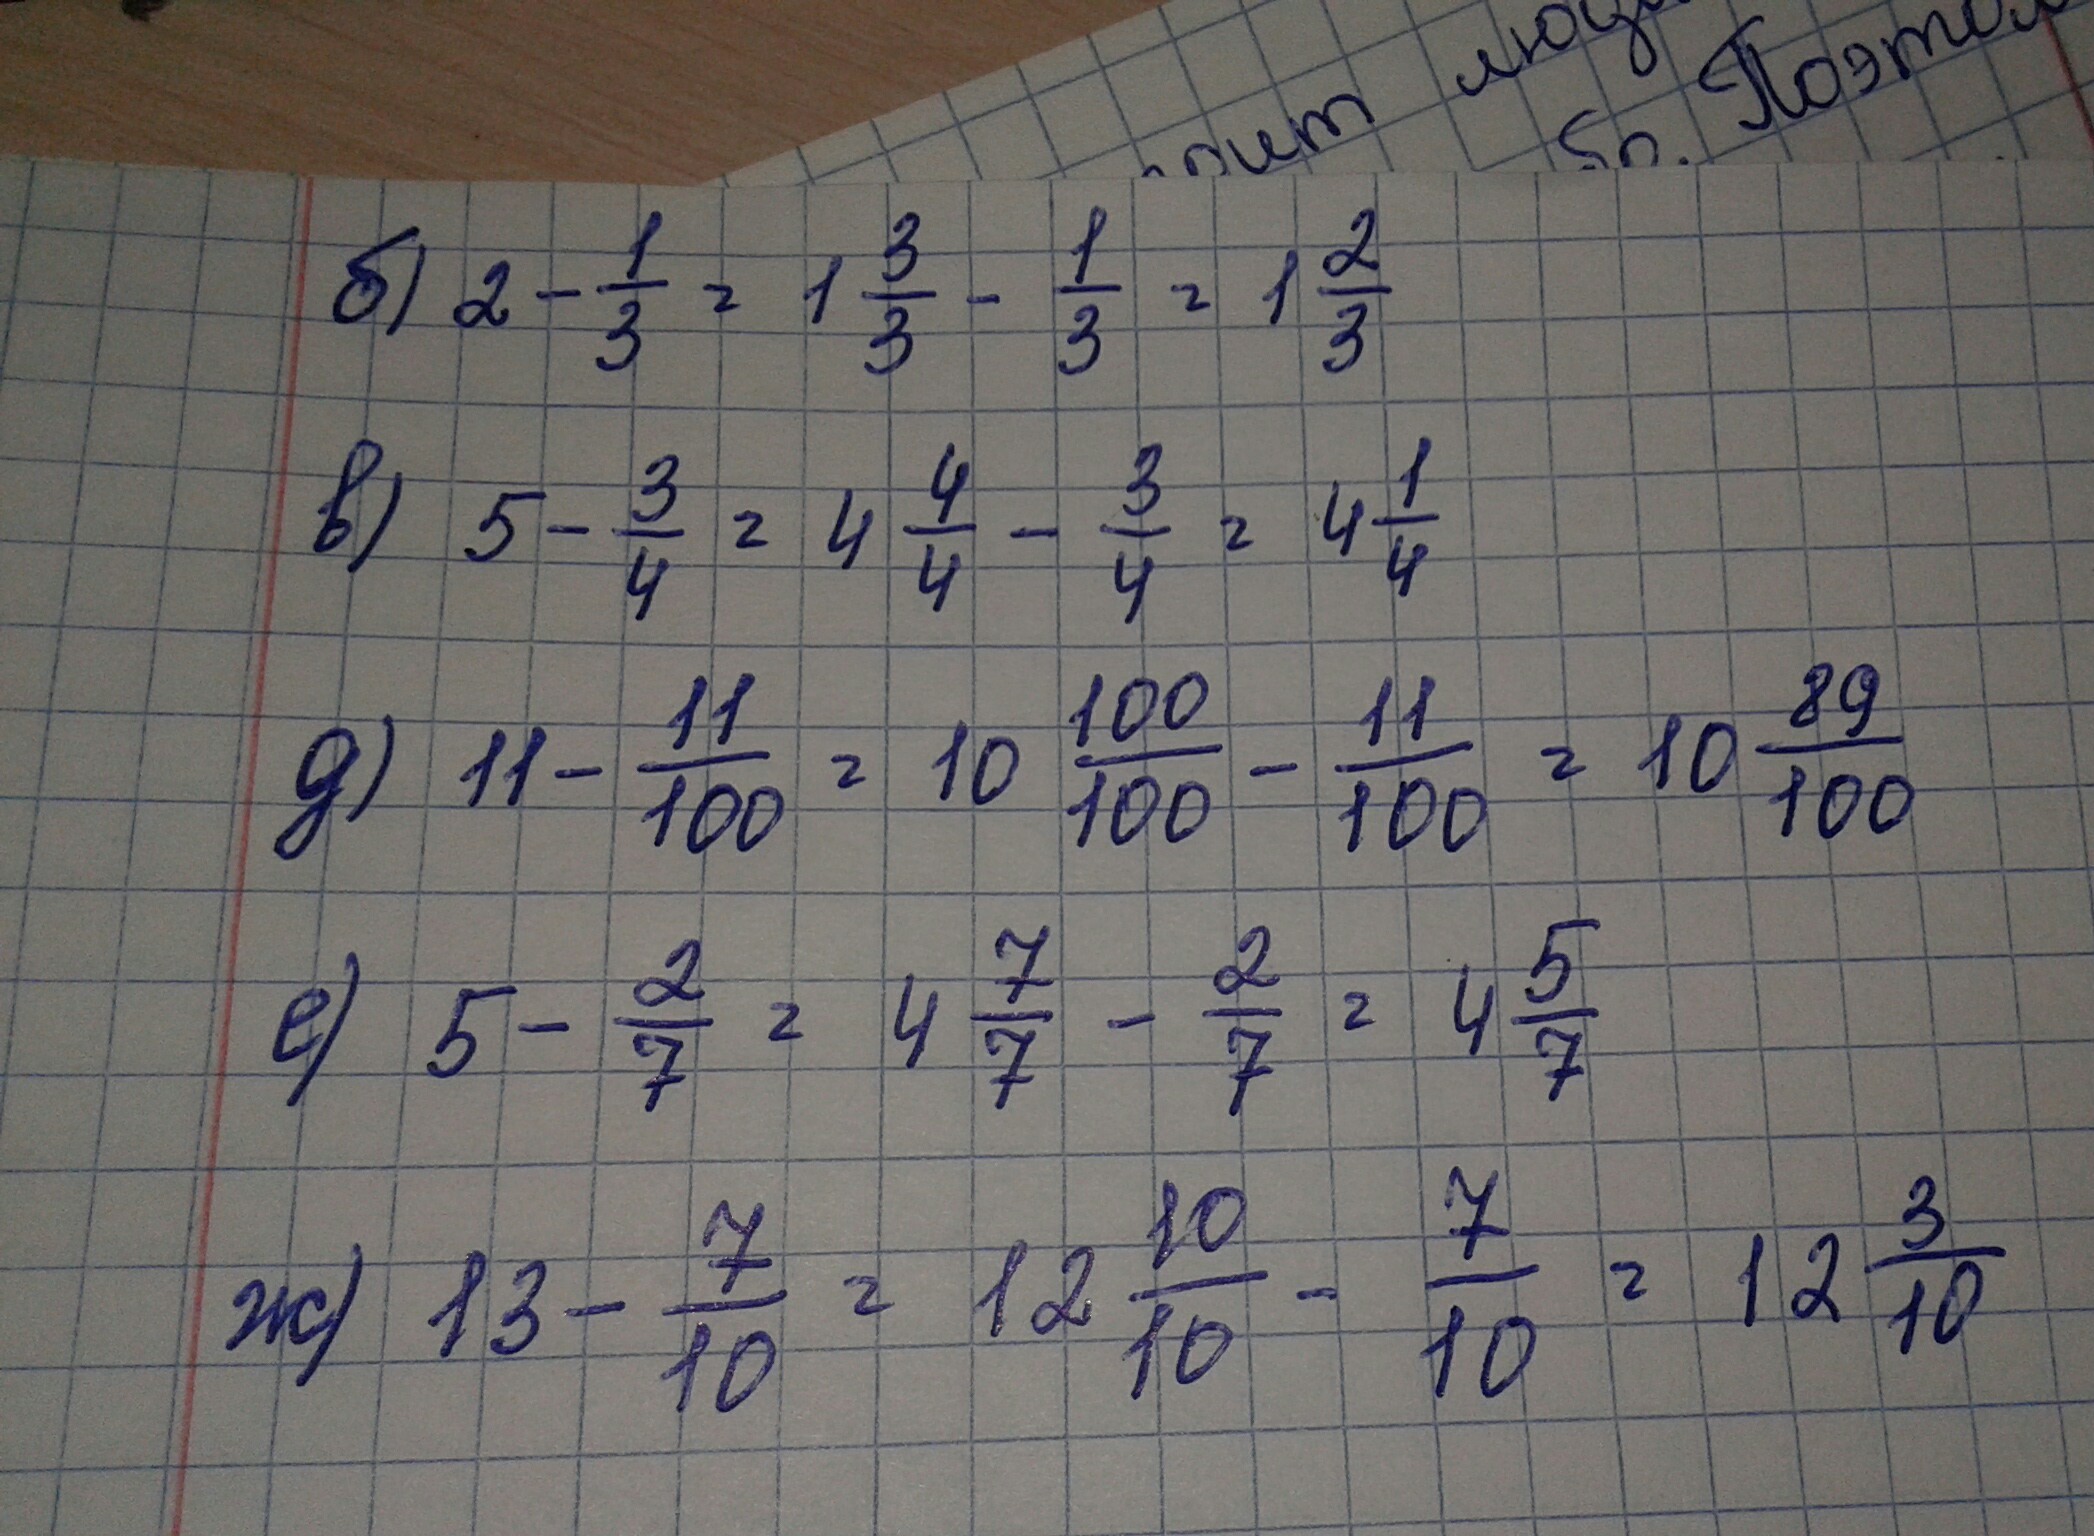 люд
оит
бо. Поэтом
б) 2 - 1/3 = 1 3/3 - 1/3 = 1 2/3
в) 5 - 3/4 = 4 4/4 - 3/4 = 4 1/4
д) 11 - 11/100 = 10 100/100 - 11/100 = 10 89/100
е) 5 - 2/7 = 4 7/7 - 2/7 = 4 5/7
ж) 13 - 7/10 = 12 10/10 - 7/10 = 12 3/10